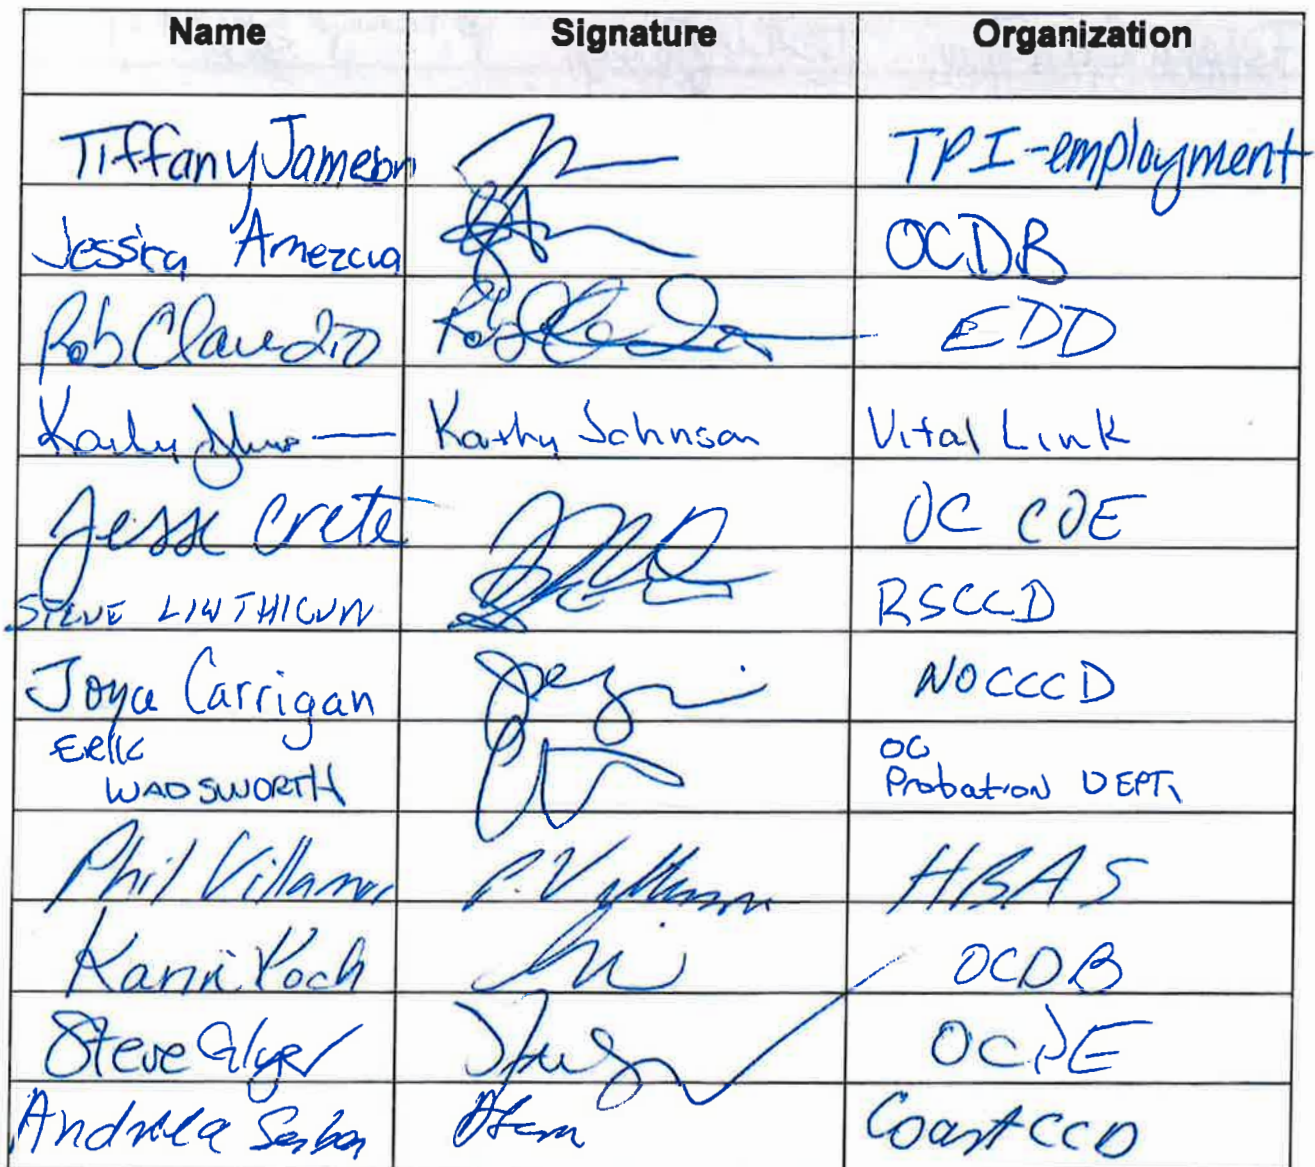 Name Signature Organization
Tiffany Jameson TPI-employment
Jessica Amezcua OCDB
Rob Claudio Rob EDD
Kathy Kathy Johnson Vital Link
Jesse Crete OC COE
STEVE LINTHICUM RSCCD
Joya Carrigan NOCCCD
Erik
WADSWORTH
OC
Probation DEPT.
Phil P. HBAS
Karin Koch OCDB
Steve
Andreea Serban Coast CCD